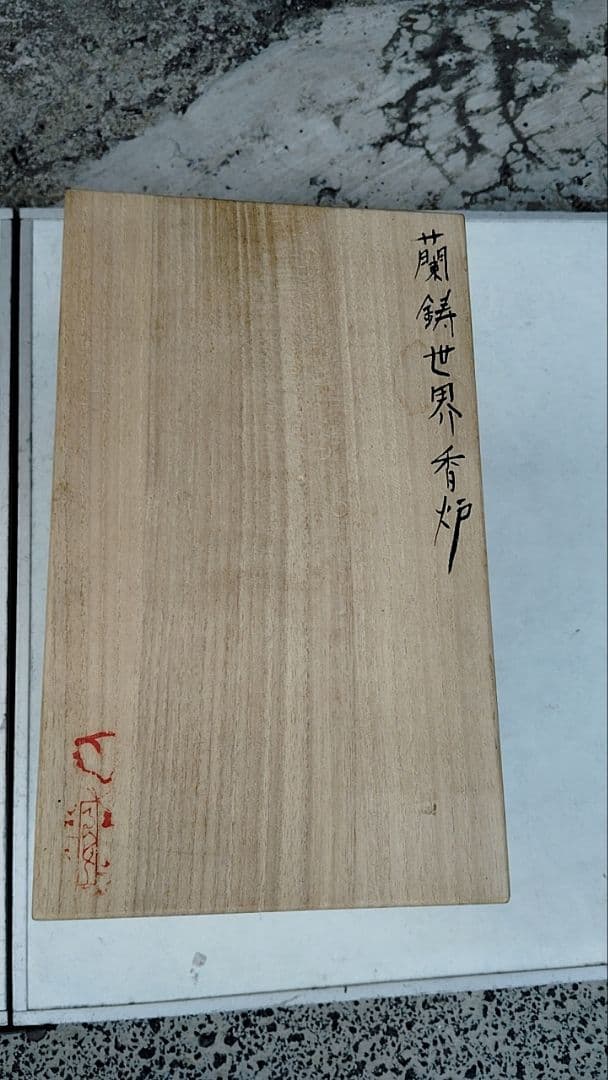 蘭鋳世界香炉